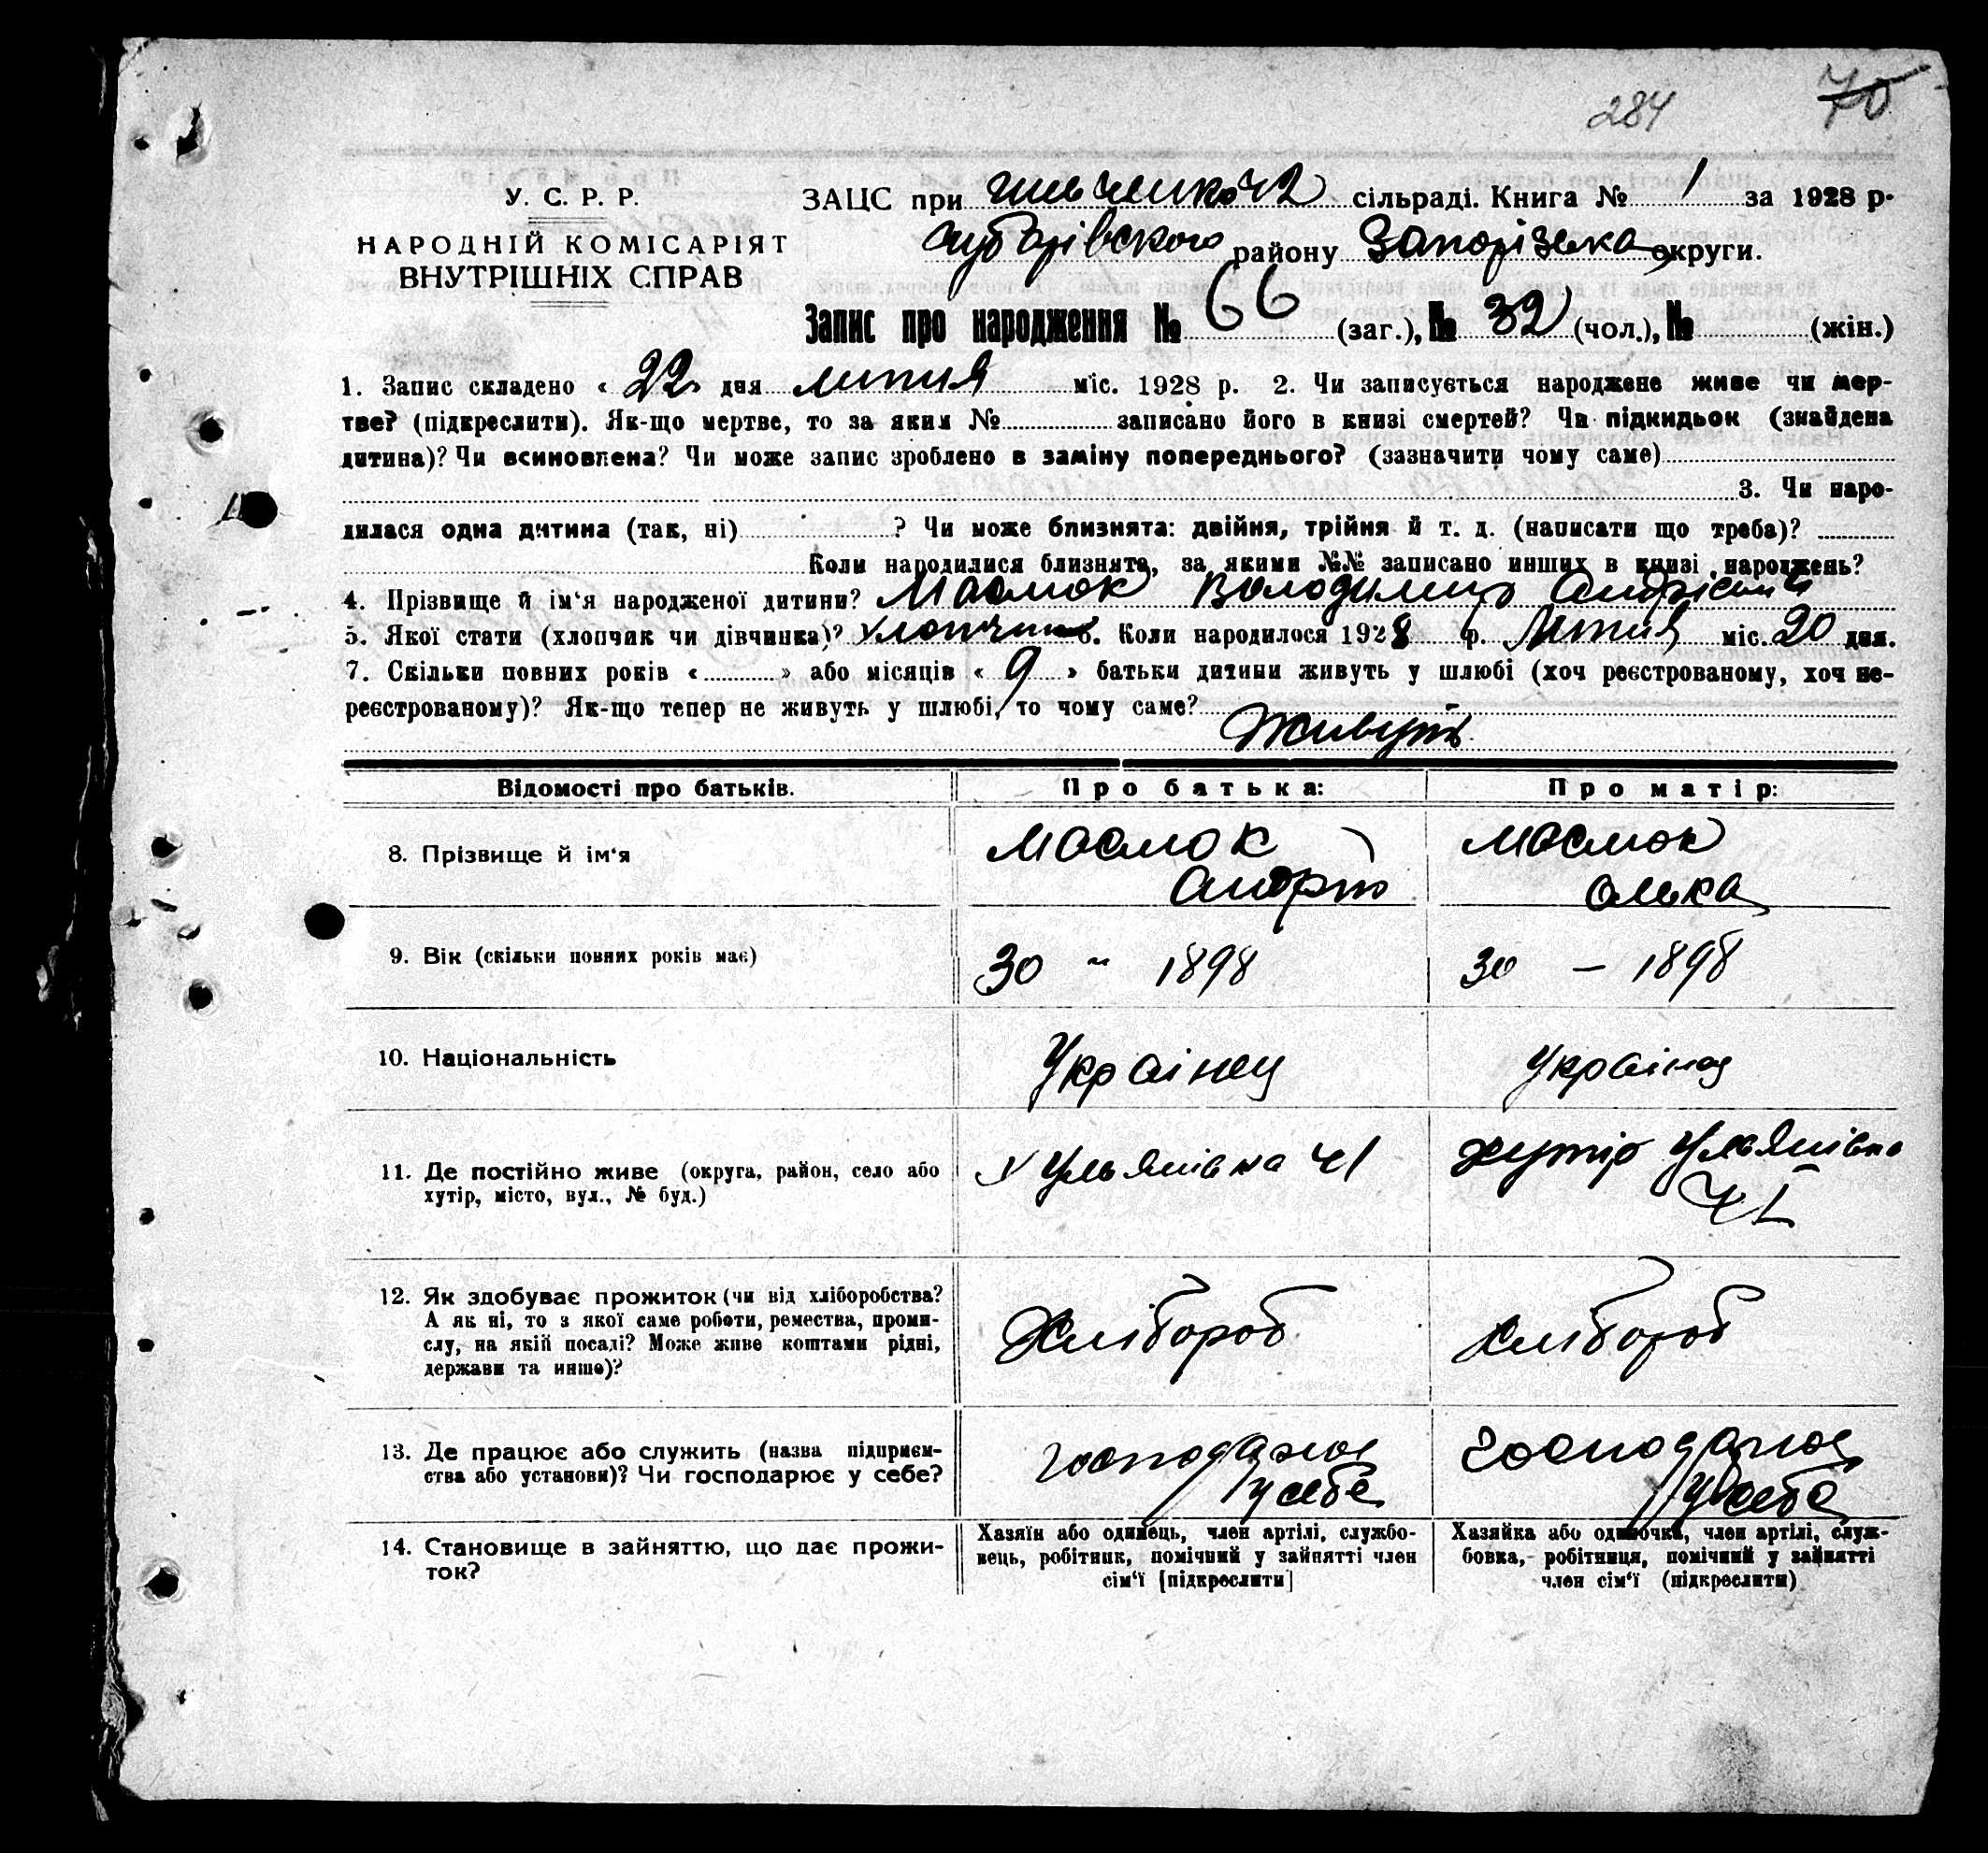 284 70
У. С. Р. Р.
НАРОДНІЙ КОМІСАРІЯТ
ВНУТРІШНІХ СПРАВ
ЗАЦС при сільраді. Книга № 1 за 1928 р.
району Запорізька округи.
Запис про народження № 66 (заг.), № 32 (чол.), № (жін.)
1. Запис складено « 22 » дня липня міс. 1928 р. 2. Чи записується народжене живе чи мер-
тве? (підкреслити). Як-що мертве, то за яким № записано його в книзі смертей? Чи підкидьок (знайдена
дитина)? Чи всиновлена? Чи може запис зроблено в заміну попереднього? (зазначити чому саме)
3. Чи наро-
дилася одна дитина (так, ні) ? Чи може близнята: двійня, трійня й т. д. (написати що треба)?
Коли народилися близнята, за якими №№ записано инших в книзі народжень?
4. Прізвище й ім'я народженої дитини? Володимир
5. Якої стати (хлопчик чи дівчинка)? хлопчик 6. Коли народилося 1928 р. липня міс. 20 дня.
7. Скільки повних років « » або місяців « 9 » батьки дитини живуть у шлюбі (хоч реєстрованому, хоч не-
реєстрованому)? Як-що тепер не живуть у шлюбі, то чому саме?
Живуть
Відомості про батьків. Про батька: Про матір:
8. Прізвище й ім'я
9. Вік (скільки повних років має) 30 – 1898 30 – 1898
10. Національність Украінец Украінка
11. Де постійно живе (округа, район, село або
хутір, місто, вул., № буд.)
х Ульянівка ч1 хутір Ульянівка
ч I
12. Як здобуває прожиток (чи від хліборобства?
А як ні, то з якої саме роботи, ремества, проми-
слу, на якій посаді? Може живе коштами рідні,
держави та инше)?
Хлібороб Хлібороб
13. Де працює або служить (назва підприєм-
ства або установи)? Чи господарює у себе?
господарює
у себе
господарює
у себе
14. Становище в зайняттю, що дає прожи-
ток?
Хазяїн або одинець, член артілі, службо-
вець, робітник, помічний у зайнятті член
сім'ї [підкреслити]
Хазяйка або одиночка, член артілі, служ-
бовка, робітниця, помічний у зайнятті
член сім'ї (підкреслити)